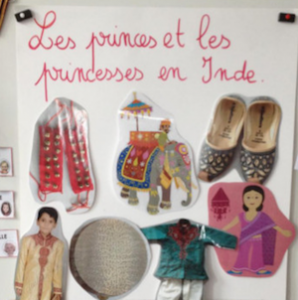 Les princes et les
princesses en Inde.